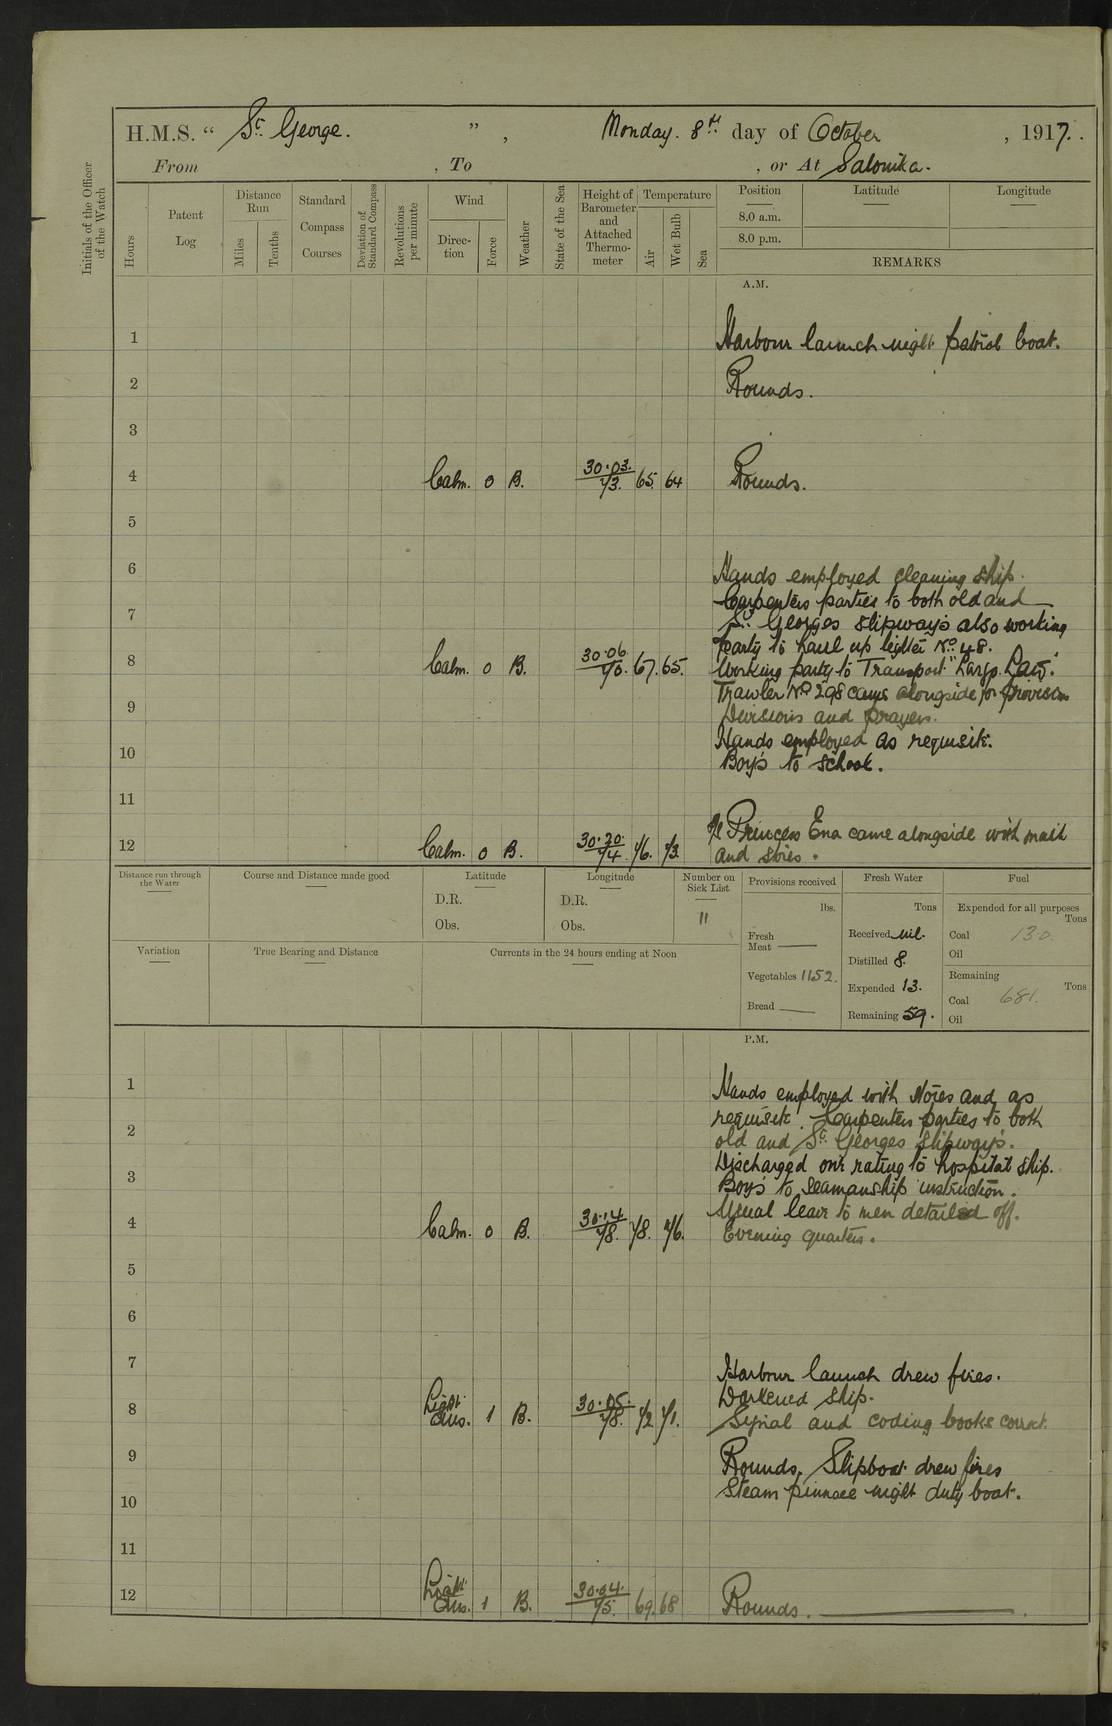 H.M.S. “ St. George. ” , Monday. 8th day of October , 1917.
From , To , or At Salonika.
Initials of the Officer of the Watch
Hours
Patent Log
Distance Run
Miles Tenths
Standard Compass Courses
Deviation of Standard Compass
Revolutions per minute
Wind
Direction Force
Weather
State of the Sea
Height of Barometer and Attached Thermometer
Temperature
Air Wet Bulb Sea
Position Latitude Longitude
8.0 a.m.
8.0 p.m.
REMARKS
A.M.
1 Harbour launch night patrol boat.
2 Rounds.
3
4 Calm. 0 B. 30.03. 73. 65. 64 Rounds.
5
6 Hands employed cleaning ship.
Carpenters parties to both old and
7 St. Georges slipways also working
party to haul up lighter No. 48.
8 Calm. 0 B. 30.06 70. 67. 65. Working party to Transport
Trawler No. 298 came alongside for provisions
9 Divisions and prayers.
Hands employed as requisite.
10 Boys to school.
11
Princess Ena came alongside with mail
12 Calm. 0 B. 30.20. 74. 76. 73. and stores.
Distance run through the Water
Course and Distance made good
Latitude
D.R.
Obs.
Longitude
D.R.
Obs.
Number on Sick List
11
Provisions received
lbs.
Fresh Meat
Vegetables 1152.
Bread
Fresh Water
Tons
Received nil.
Distilled 8.
Expended 13.
Remaining 59.
Fuel
Expended for all purposes
Tons
Coal 130.
Oil
Remaining
Tons
Coal 681.
Oil
Variation
True Bearing and Distance
Currents in the 24 hours ending at Noon
P.M.
1 Hands employed with stores and as
requisite. Carpenters parties to both
2 old and St. Georges slipways.
3 Discharged one rating to hospital ship.
Boys to seamanship instruction.
Usual leave to men detailed off.
4 Calm. 0 B. 30.14 78. 78. 76. Evening quarters.
5
6
7 Harbour launch drew fires.
Darkened ship.
8 Light airs. 1 B. 30.05. 78. 72 71. Signal and coding books correct.
9 Rounds. Slipboat drew fires
10 Steam pinnace night duty boat.
11
12 Light airs. 1 B. 30.04. 75. 69. 68 Rounds.